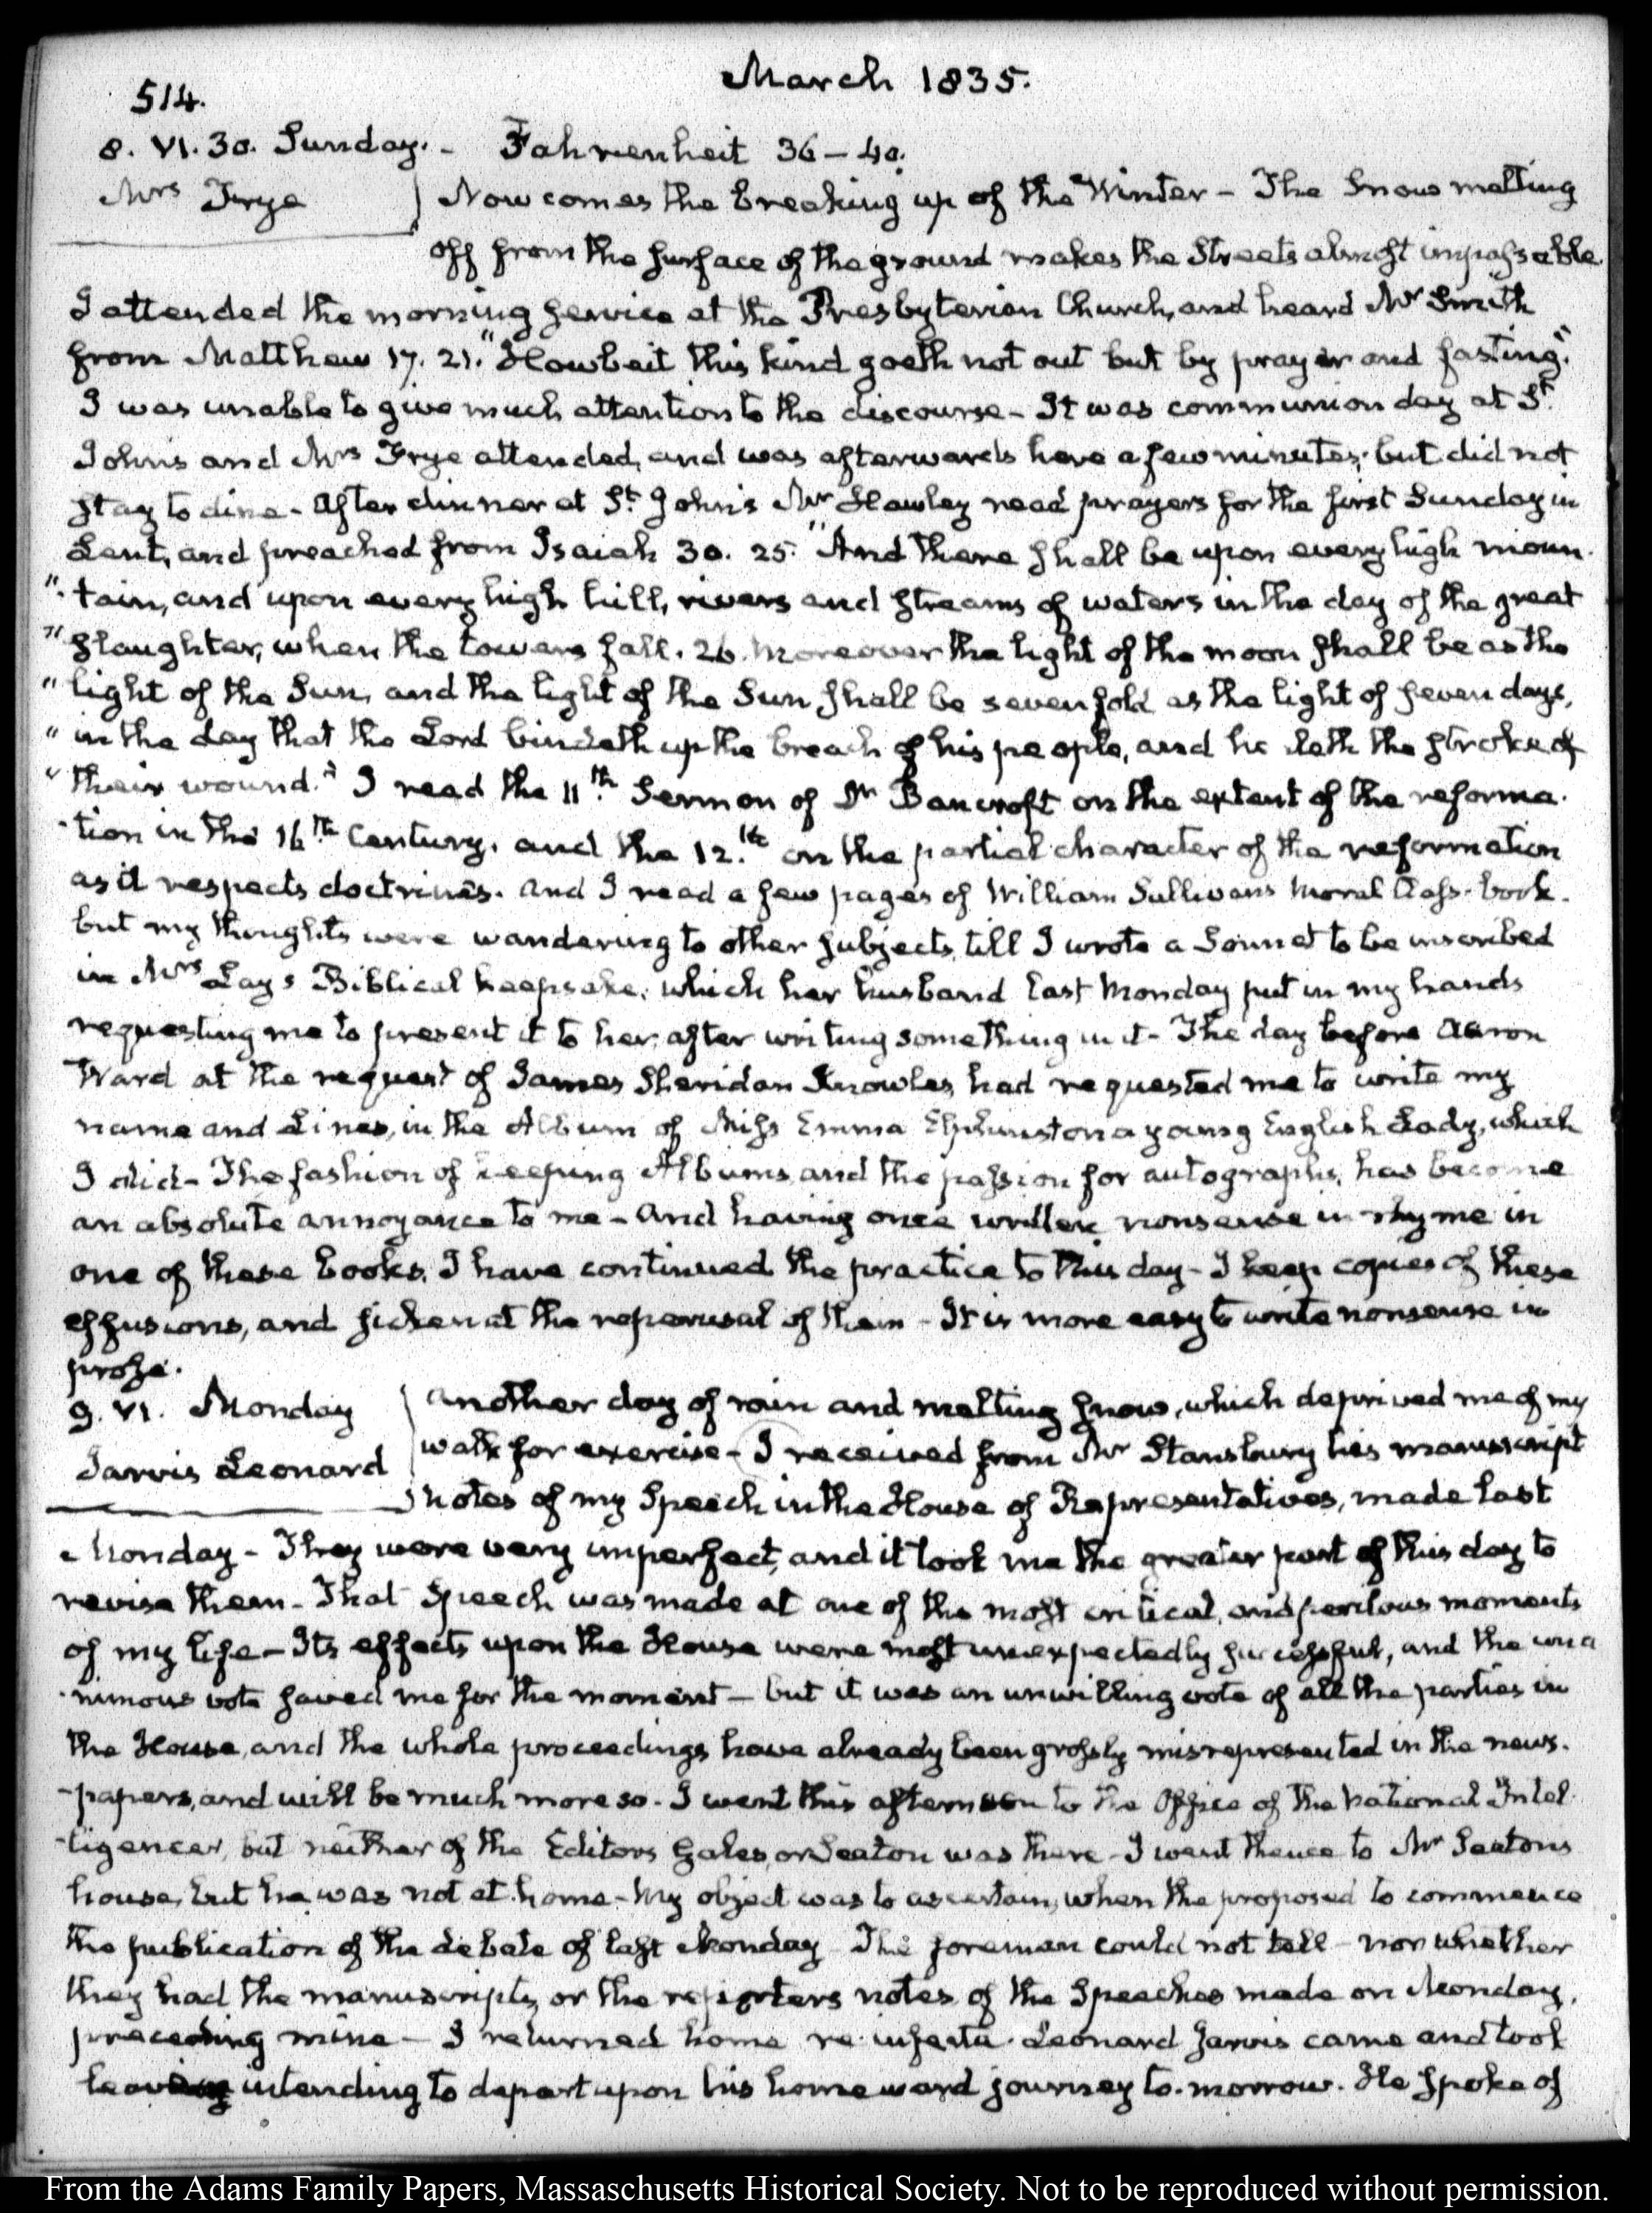 March 1835.
514.
8. VI. 30. Sunday. - Fahrenheit 36 - 40.
Mrs Frye
Now comes the breaking up of the Winter - The Snow melting
off from the surface of the ground makes the Streets almost impassable.
I attended the morning service at the Presbyterian Church, and heard Mr Smith
from Matthew 17. 21. "Howbeit this kind goeth not out but by prayer and fasting."
I was unable to give much attention to the discourse - It was communion day at St.
Johns and Mrs Frye attended, and was afterwards here a few minutes; but did not
stay to dine - After dinner at St. John's Mr Hawley read prayers for the first Sunday in
Lent, and preached from Isaiah 30. 25. "And there shall be upon every high moun-
"-tain, and upon every high hill, rivers and streams of waters in the day of the great
"slaughter, when the towers fall. 26. Moreover the light of the moon shall be as the
"light of the Sun, and the light of the Sun shall be seven fold as the light of seven days,
"in the day that the Lord bindeth up the breach of his people, and healeth the stroke of
"their wound." I read the 11th. Sermon of Dr Bancroft on the extent of the reforma-
-tion in the 16th. Century. and the 12.th on the partial character of the reformation
as it respects doctrines. And I read a few pages of William Sullivans Moral Class-book.
but my thoughts were wandering to other subjects, till I wrote a Sonnet to be inscribed
in Mrs Lay's Biblical keepsake, which her husband last Monday put in my hands
requesting me to present it to her, after writing something in it - The day before Aaron
Ward at the request of James Sheridan Knowles had requested me to write my
name and Lines, in the Album of Miss Emma Elphinstone a young English Lady, which
I did - The fashion of keeping Albums and the passion for autographs, has become
an absolute annoyance to me - And having once written nonsense in rhyme in
one of these books, I have continued the practice to this day - I keep copies of these
effusions, and sicken at the reperusal of them - It is more easy to write nonsense in
prose.
9. VI. Monday
Jarvis Leonard
Another day of rain and melting snow, which deprived me of my
walk for exercise - I received from Mr Stansbury his manuscript
notes of my Speech in the House of Representatives, made last
Monday - They were very imperfect, and it took me the greater part of this day to
revise them - That Speech was made at one of the most critical, and perilous moments
of my life - Its effects upon the House were most unexpectedly successful, and the una
-nimous vote saved me for the moment - but it was an unwilling vote of all the parties in
the House, and the whole proceedings have already been grossly misrepresented in the news-
-papers, and will be much more so. I went this afternoon to the Office of the National Intel-
-ligencer, but neither of the Editors Gales, or Seaton was there - I went thence to Mr Seatons
house, but he was not at home - My object was to ascertain, when the proposed to commence
the publication of the debate of last Monday The foreman could not tell - nor whether
they had the manuscripts, or the reporters notes of the Speeches made on Monday,
preceding mine - I returned home re infecta. Leonard Jarvis came and took
leave intending to depart upon his homeward journey to-morrow. He spoke of
From the Adams Family Papers, Massaschusetts Historical Society. Not to be reproduced without permission.